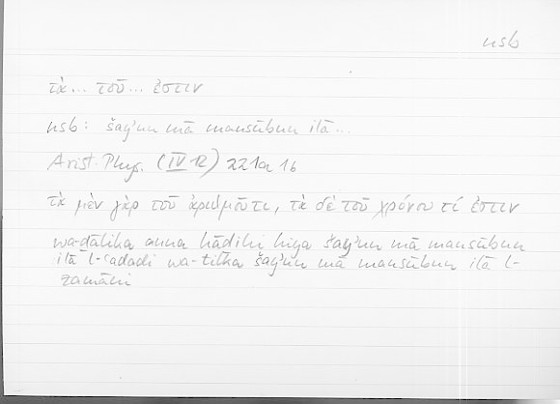 nsb
τὰ... τοῦ... ἐστιν
nsb: šayʾun mā mansūbun ilā...
Arist. Phys. (IV 12) 221a 16
τὰ μὲν γὰρ τοῦ ἀριθμοῦ τι, τὰ δὲ τοῦ χρόνου τί ἐστιν
wa-ḏālika anna hāḏihi hiya šayʾun mā mansūbun
ilā l-ʿadadi wa-tilka šayʾun mā mansūbun ilā l-
zamāni